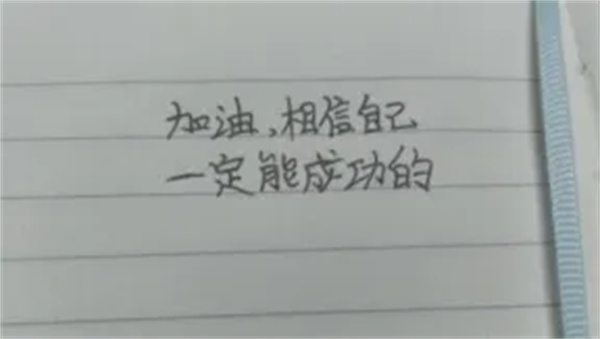 加油,相信自己
一定能成功的